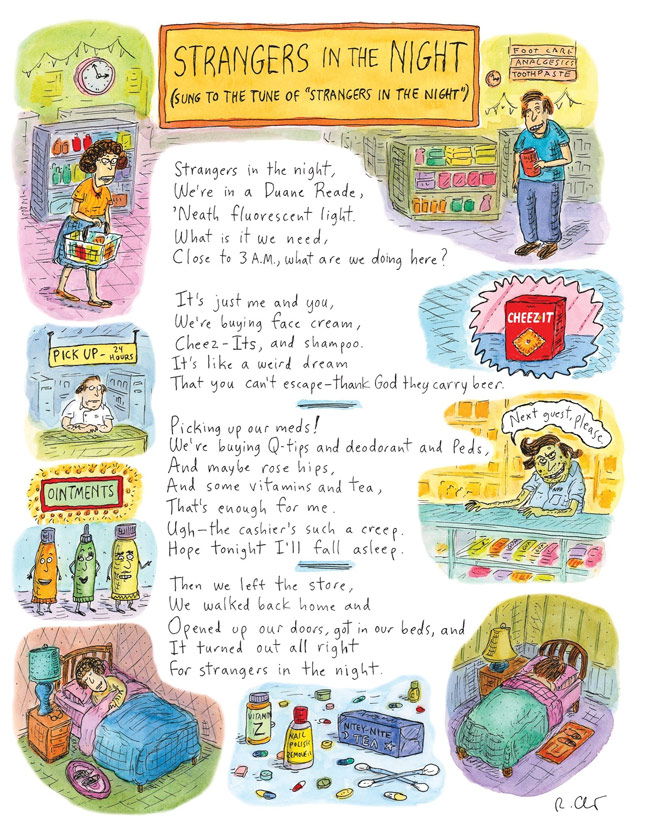 STRANGERS IN THE NIGHT
(SUNG TO THE TUNE OF "STRANGERS IN THE NIGHT")
FOOT CARE
ANALGESICS
TOOTHPASTE
Strangers in the night,
We're in a Duane Reade,
'Neath fluorescent light.
What is it we need,
Close to 3 A.M., what are we doing here?
It's just me and you,
We're buying face cream,
Cheez-Its, and shampoo.
It's like a weird dream
That you can't escape—thank God they carry beer.
CHEEZ-IT
PICK UP - 24 HOURS
Picking up our meds!
We're buying Q-tips and deodorant and Peds,
And maybe rose hips,
And some vitamins and tea,
That's enough for me.
Ugh—the cashier's such a creep.
Hope tonight I'll fall asleep.
Next guest, please.
OINTMENTS
Then we left the store,
We walked back home and
Opened up our doors, got in our beds, and
It turned out all right
For strangers in the night.
VITAMIN
Z
NAIL
POLISH
REMOVER
NITEY-NITE
TEA
R. Chst